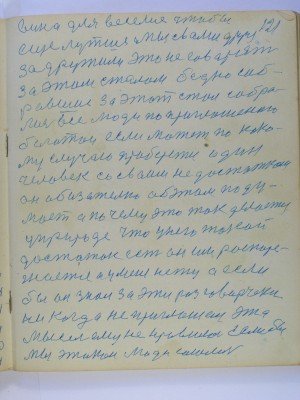 вина для веселия чтобы 121
еще лутшя мысвами друг
задружили это не говарят
за этом сталом бедно соб
равшие за этот стол собра
лися все люди поприглашению
богатои если может по како
му случаю прабережи один
человек со своим недостатком
он абизателно обэтом поду
мает а почему это так делается
у природе что у него такой
достаток ест он им распоре
жается а у меня нету а если
бы он знал за эти разговорчики
никогда не приглашал эта
мысел ему не нравилас
мы этакои люди